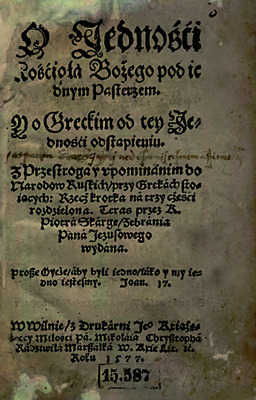 O Jednośći
Kośćioła Bożego pod ie
dnym Pasterzem.
Y o Greckim od tey Je-
dnośći odstąpieniu.
z Przestrogą y vpominánim do
Narodow Ruskich/przy Grekách sto-
iących: Rzecż krotka ná trzy cżęśći
rozdzielona. Teraz przez K.
Piotrá Skárgę/Zebránia
Páná Jezusowego
wydána.
Proszę Oycże/áby byli iedno/iáko y my ie-
dno iesteśmy. Joan. 17.
W Wilnie/z Drukárni Jeº Kxiąże-
cey Miłośći Pá. Mikołáiá Chrysztophá
Rádziwiłá Márszałká W. Kxię. Lit. ꝛc.
Roku 1577.
15.587